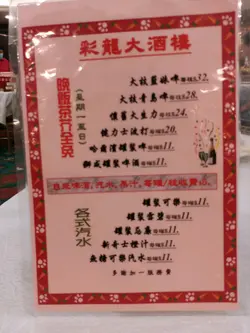 彩龍大酒樓
晚飯茶行全英
(星期一至日)
大枝藍妹啤 每樽$32.
大枝青島啤 每樽$28.
懷舊大生力 每樽$24.
健力士波打 每樽$20.
哈爾濱罐裝啤 每罐$11.
獅威罐裝啤酒 每罐$11.
各式汽水
罐裝可樂 每罐$11.
罐裝雪碧 每罐$11.
罐裝忌廉 每罐$11.
新奇士橙汁 每罐$11.
無糖可樂汽水 每罐$11.